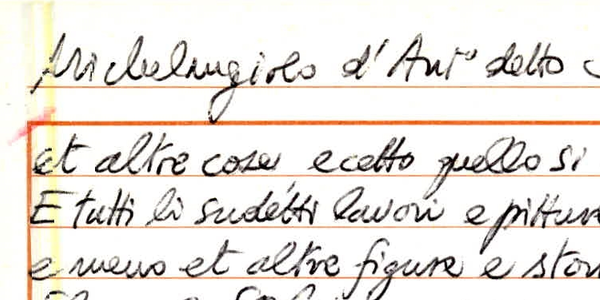 Michelangiolo d' Ant° detto
et altre cose ecetto quello si
E tutti li sudetti lavori e pitture
e meno et altre figure e